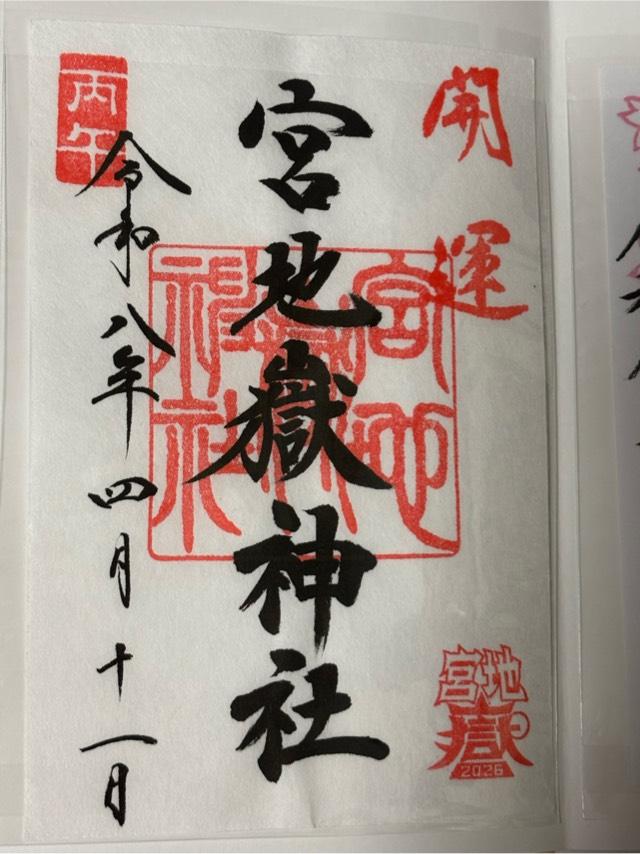 開運
宮地嶽神社
宮地嶽神社
宮地
嶽
2026
丙午
令和八年四月十一日